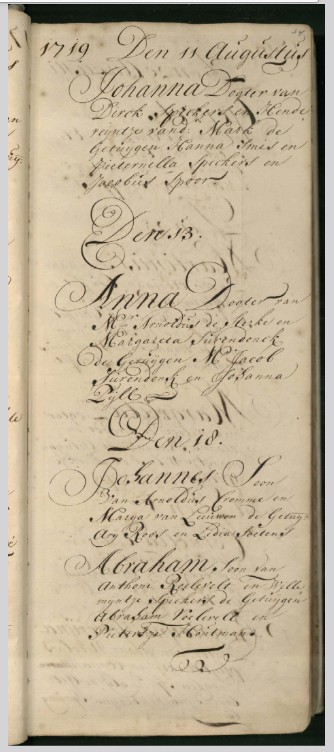 1719 Den 11 Augustus
Johanna Dogter van
Dirck Spickers en Hende
rijntje vand. Mark de
Getuijgen Hanna Smes en
Pieternella Spickers en
Jacobus Spoor
Den 13.
Anna Dogter van
Mr. Arnoldus de Sterke en
Margareta Surendonck
de Getuijgen Mr Jacob
Surendonk en Johanna
Zijll
Den 18.
Johannes Soon
van Arnoldus Vromme en
Marya van Leeuwen de Getuij
Ary Roos en Lidia
Abraham Soon van
Anthoni Roelevelt en Wille
myntje Spickers de Getuijgen
Abraham Roelevelt en
Pietertje Houtman